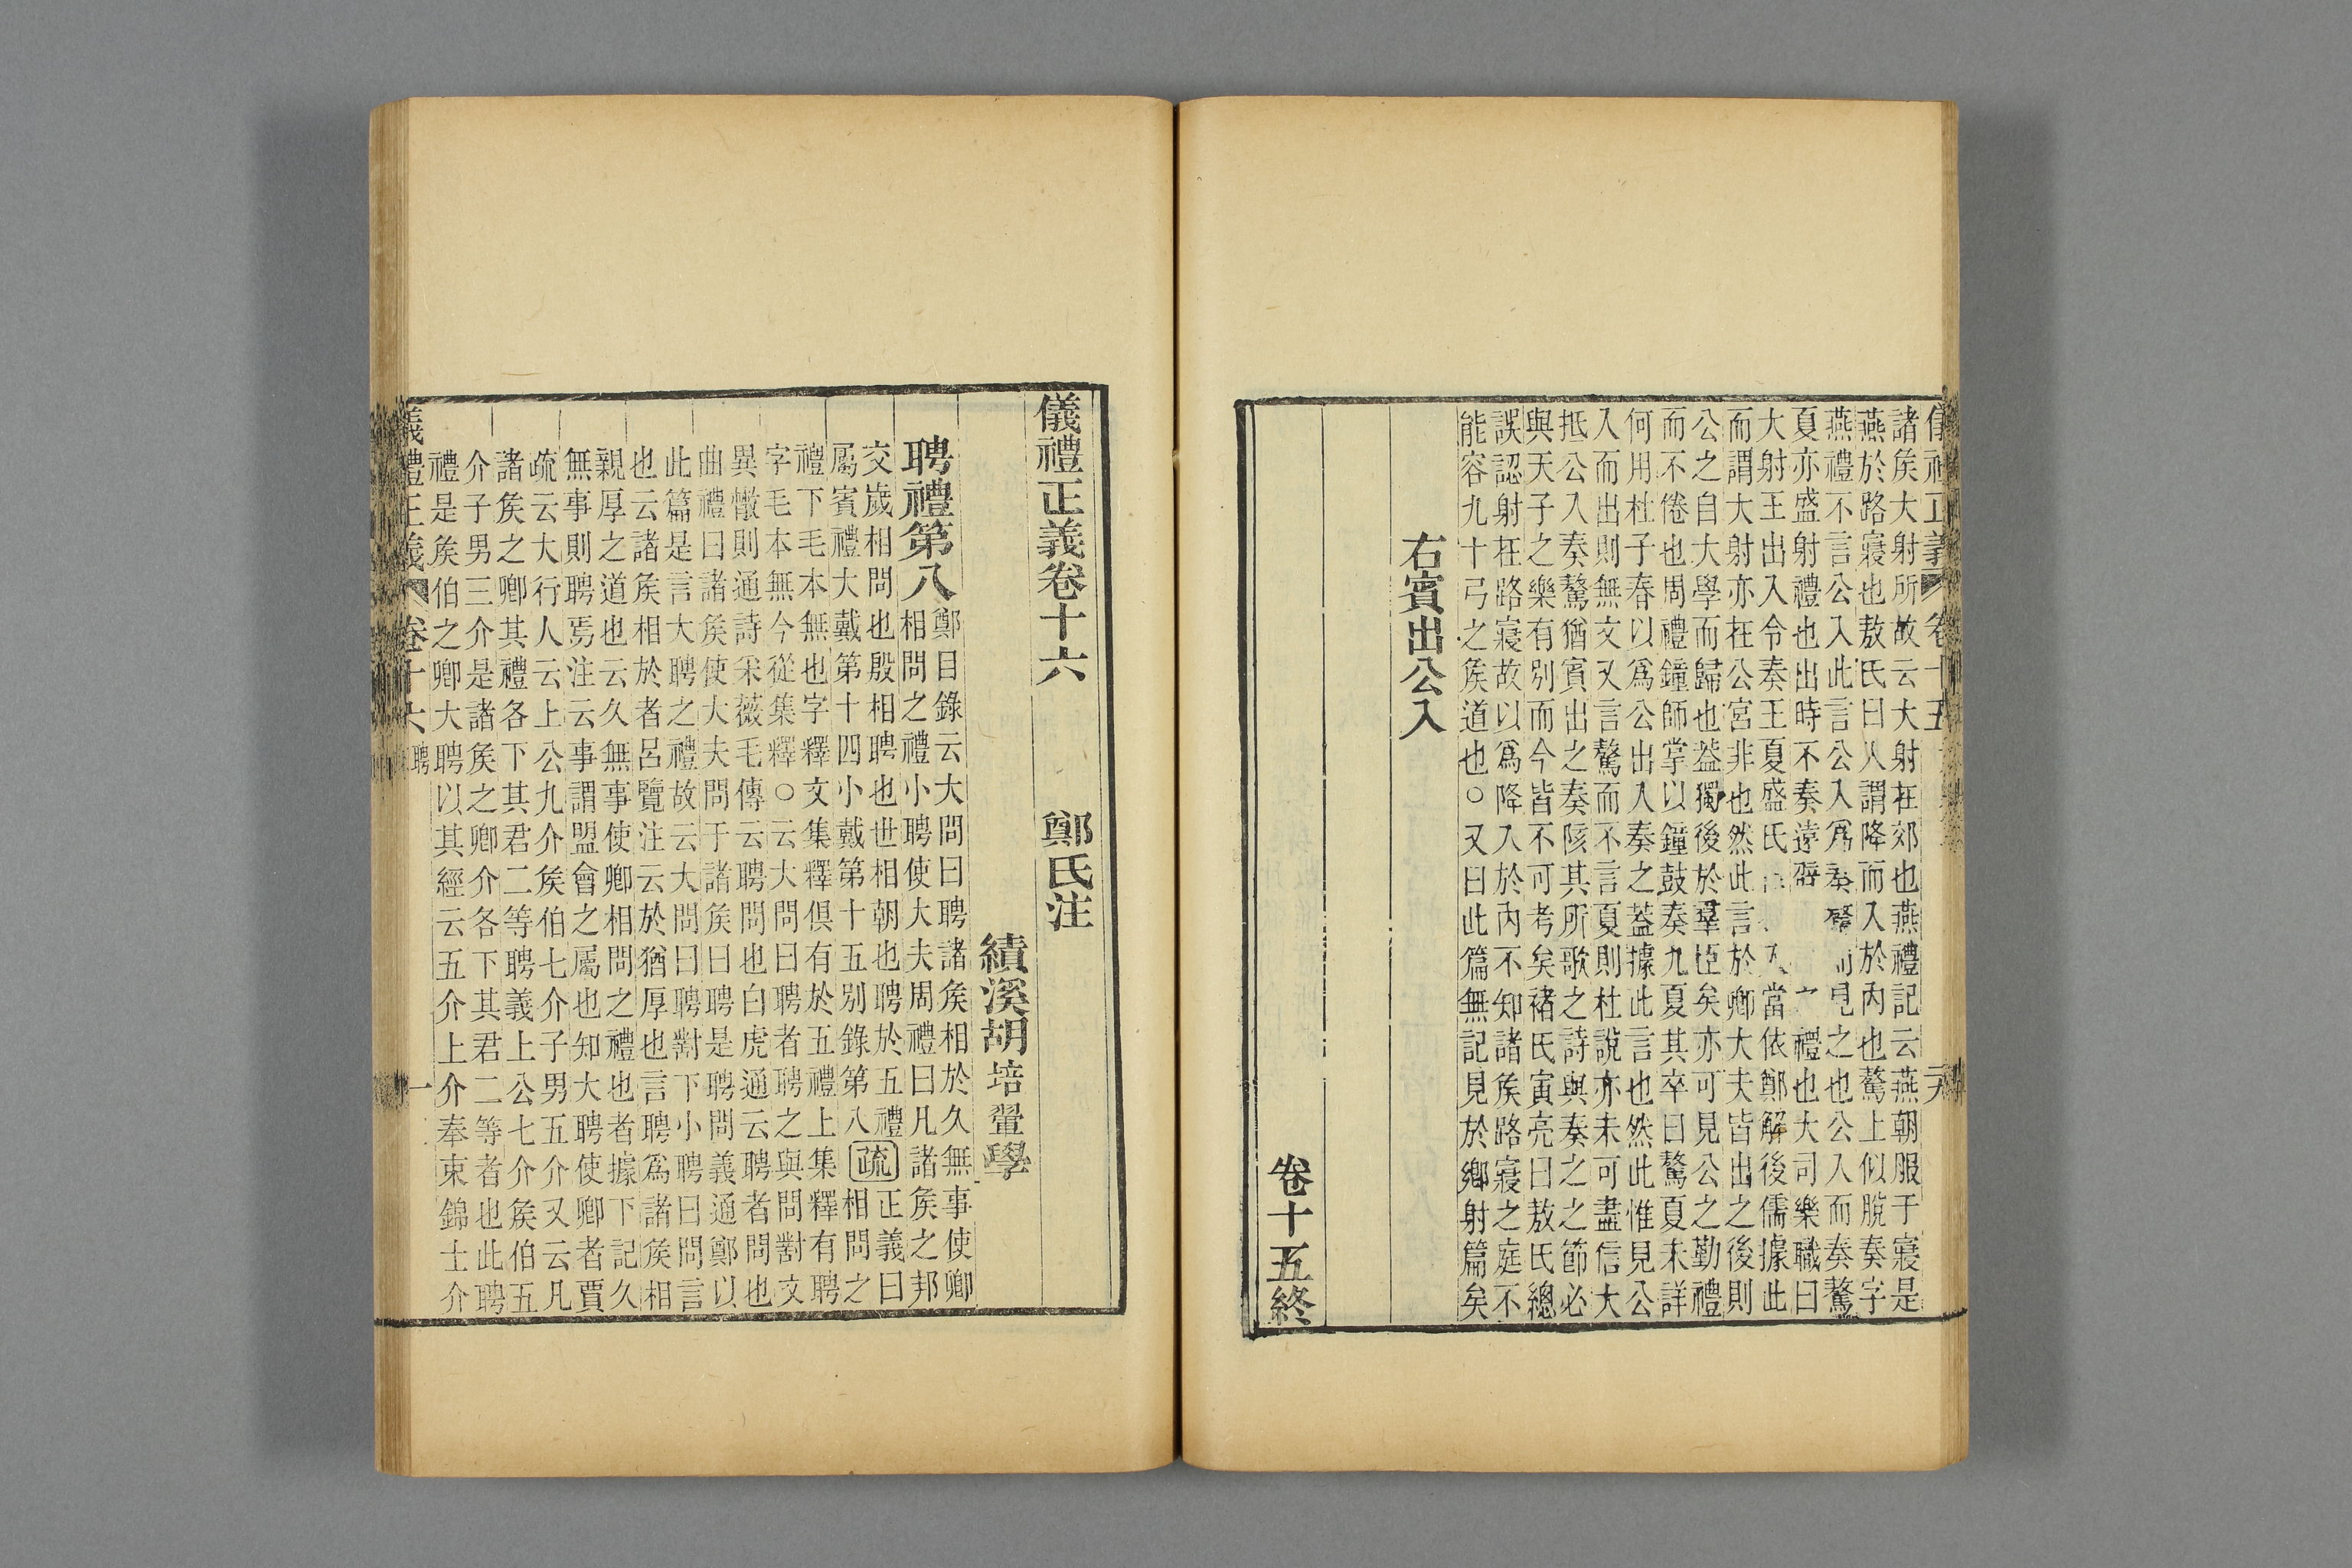 卷十五
諸矦大射所故云大射在郊也燕禮記云燕朝服于寢是
燕於路寢也敖氏曰入謂降而入於內也驁上似脫奏字
燕禮不言公入此言公入爲奏驁而見之也公入而奏驁
夏亦盛射禮也出時不奏遠辟禮也大司樂職曰
大射王出入令奏王夏盛氏入當依鄭解後儒據此
而謂大射亦在公宮非也然此言於卿大夫皆出之後則
公之自大學而歸也葢獨後於羣臣矣亦可見公之勤禮
而不倦也周禮鐘師掌以鐘鼓奏九夏其卒曰驁夏未詳
何用杜子春以爲公出入奏之葢據此言也然此惟見公
入而出則無文又言驁而不言夏則杜說亦未可盡信大
抵公入奏驁猶賓出之奏陔其所歌之詩與奏之之節必
與天子之樂有別而今皆不可考矣褚氏寅亮曰敖氏總
誤認射在路寢故以爲降入於內不知諸矦路寢之庭不
能容九十弓之矦道也○又曰此篇無記見於鄉射篇矣
右賓出公入
卷十五終
儀禮正義卷十六 鄭氏注
績溪胡培翬學
聘禮第八 鄭目錄云大問曰聘諸矦相於久無事使卿
相問之禮小聘使大夫周禮曰凡諸矦之邦
交歲相問也殷相聘也世相朝也聘於五禮 正義曰
屬賓禮大戴第十四小戴第十五別錄第八 疏 相問之
禮下毛本無也字釋文集釋俱有於五禮上集釋有聘
字毛本無今從集釋○云大問曰聘者聘之與問對文
異散則通詩采薇毛傳云聘問也白虎通云聘者問也
曲禮曰諸矦使大夫問于諸矦曰聘是聘問義通鄭以
此篇是言大聘之禮故云大問曰聘對下小聘曰問言
也云諸矦相於者呂覽注云於猶厚也言聘爲諸矦相
親厚之道也云久無事使卿相問之禮也者據下記久
無事則聘焉注云事謂盟會之屬也知大聘使卿者賈
疏云大行人云上公九介矦伯七介子男五介又云凡
諸矦之卿其禮各下其君二等聘義上公七介矦伯五
介子男三介是諸矦之卿介各下其君二等者也此聘
禮是矦伯之卿大聘以其經云五介上介奉束錦士介
義禮正義 卷十六 聘 一